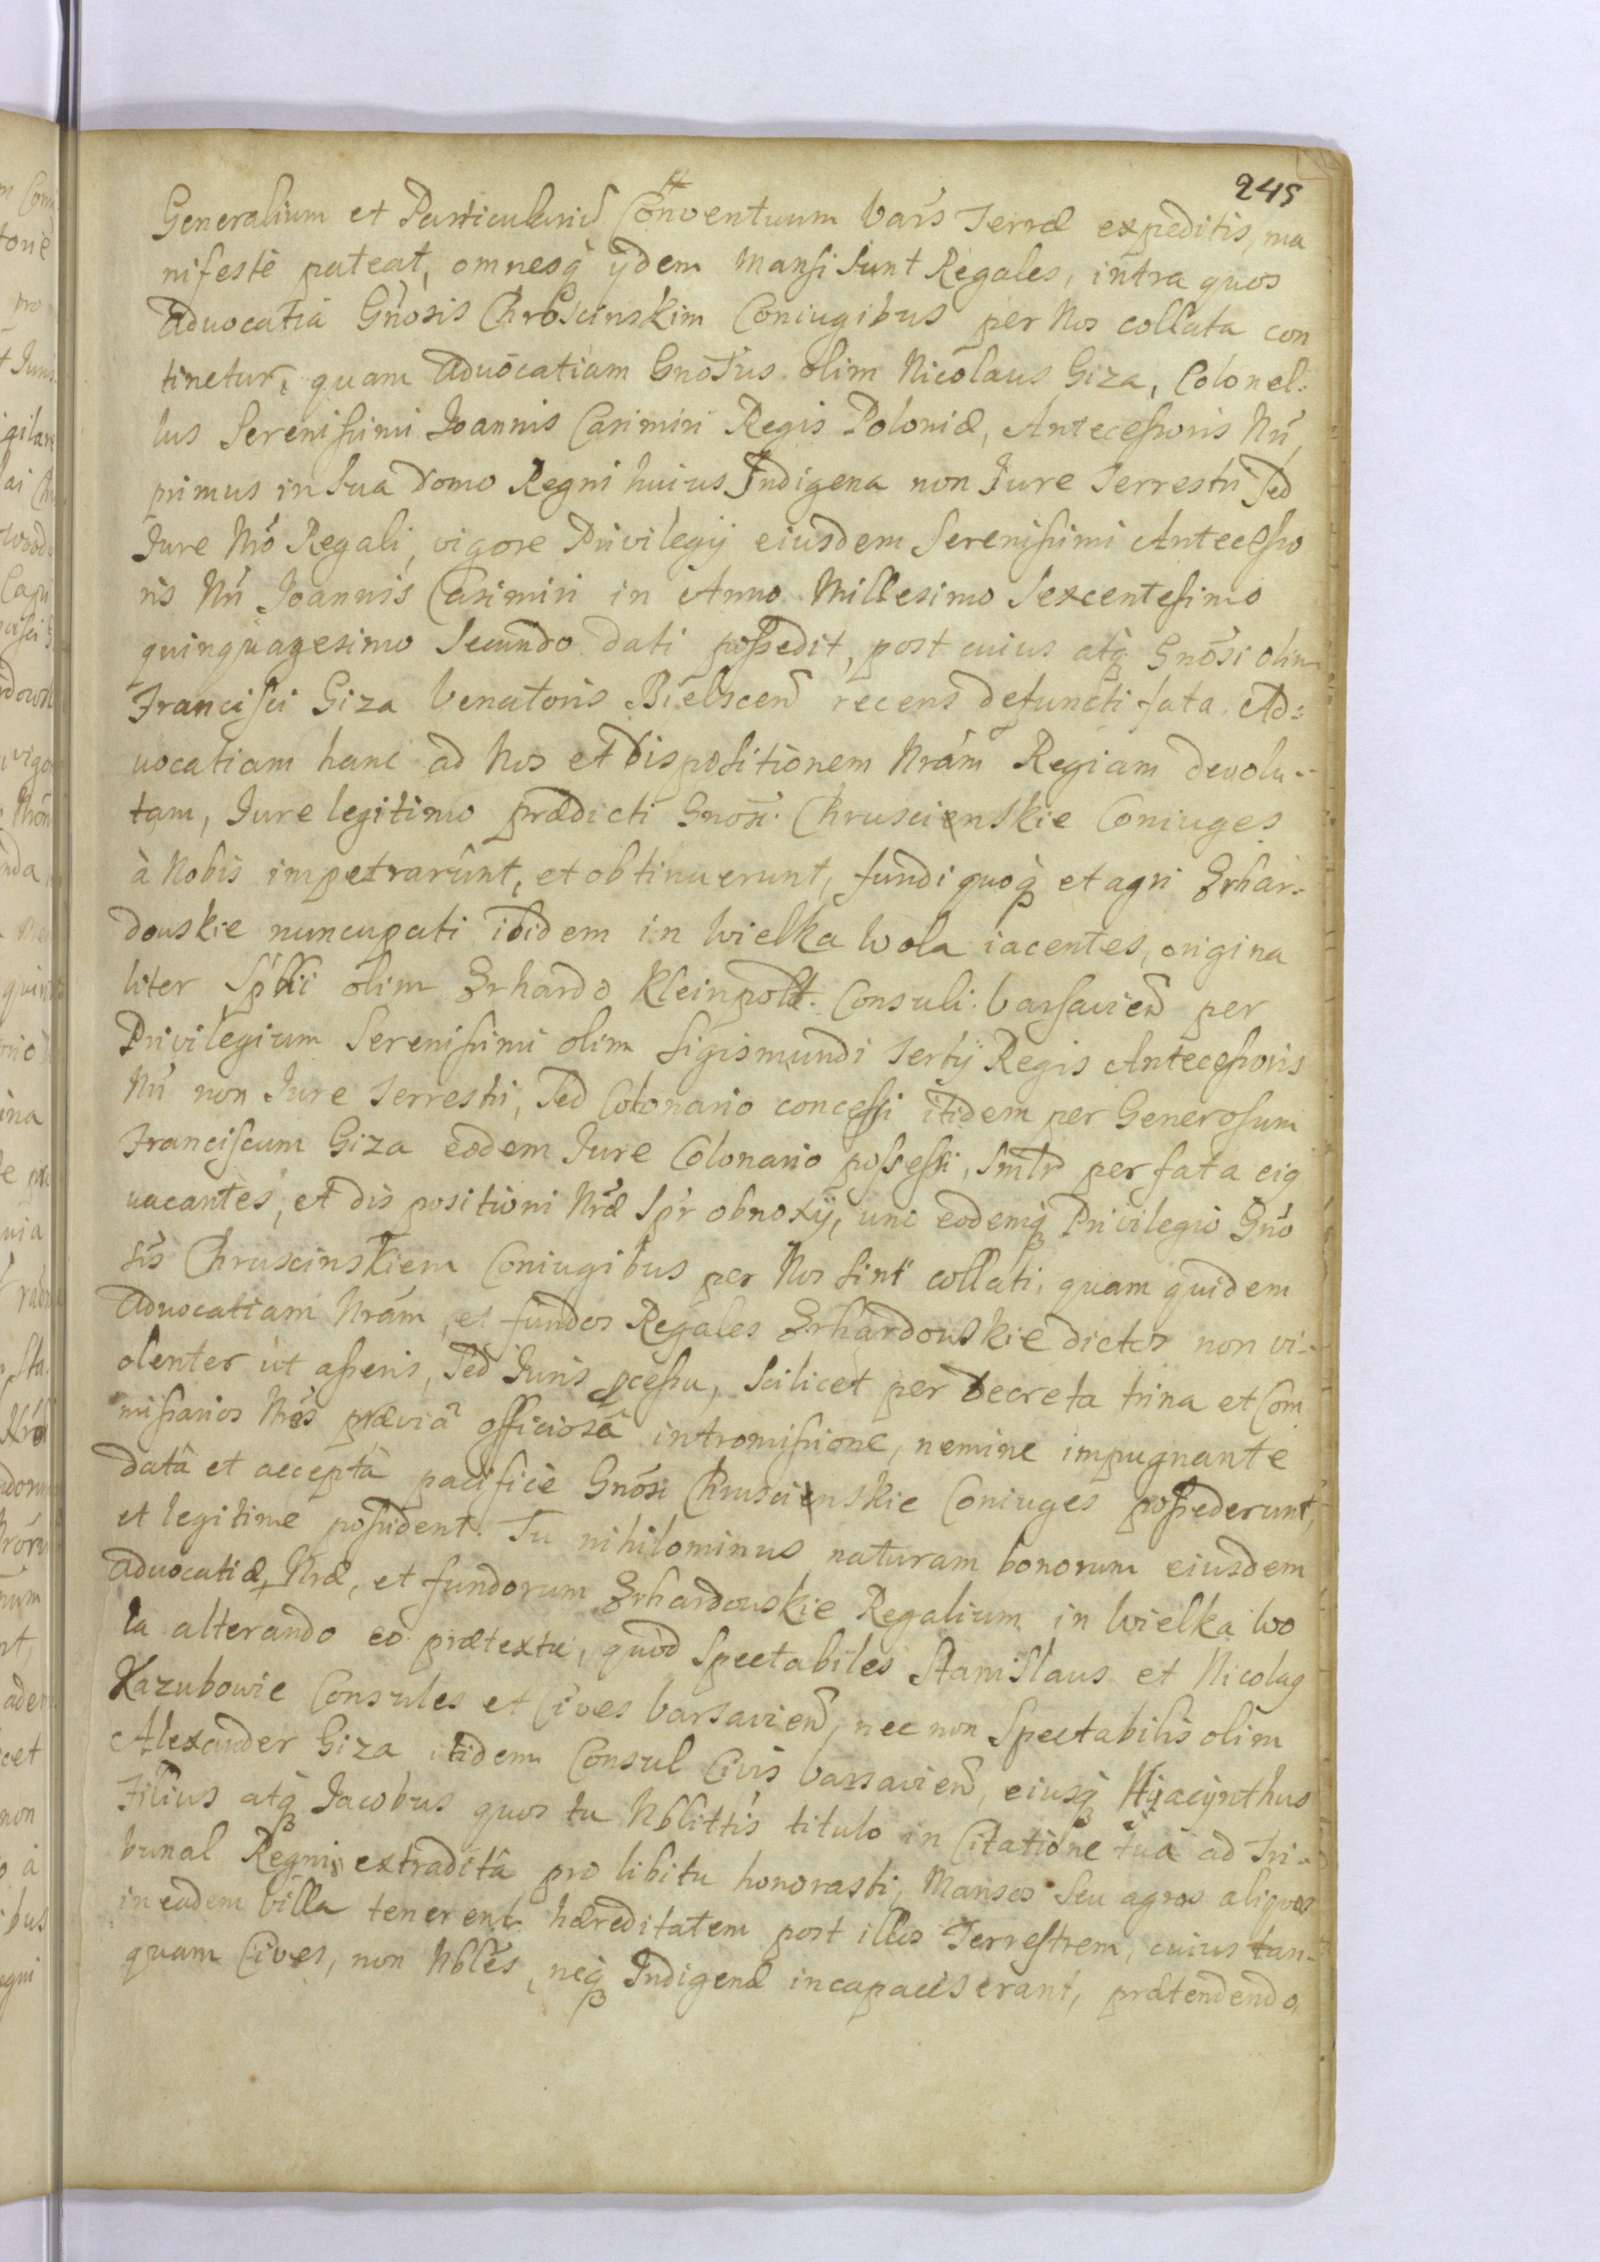 245
Generalium et Particulariũ Conventuum Vars Terræ expeditis, ma
nifestè pateat, omnesq̀ ijdem Mansi sunt Regales, intra quos
Aduocatia Gńosis Chroscinskim Coniugibus per Nos collata con
tinetur, quam Aduocatiam Gnosus olim Nicolaus Giza, Colonel:
lus Serenissimi Joannis Casimiri Regis Poloniæ, Antecessoris Nri,
primus in sua Domo Regni huius Indigena non Jure Terrestri sed
Jure Nró Regali, vigore Privilegij eiusdem Serenissimi Antecesso
ris Nri Joannis Casimiri in Anno Millesimo Sexcentesimo
quinquagesimo Secundo dati possedit, post cuius atq̀ Gnósi olim
Francisci Giza Venatoris Bielsceñ recens defuncti fata Ad:
uocatiam hanc ad Nos et dispositionem Nrám Regiam devolu-
tam, Jure legitimo prædicti Gnosi Chruscienskie Coniuges
à Nobis impetrarûnt, et obtinuerunt, fundi quoq̀ et agri Erhar-
douskie nuncupati ibidem in Wielka Wola iacentes, origina
liter Spblii olim Erhardo Kleinpolt. Consuli Varsavieñ per
Privilegium Serenissimi olim Sigismundi Tertij Regis Antecessoris
Nri non Jure Terrestri, sed Colonario concessi itidem per Generosum
Franciscum Giza eodem Jure Colonario possessi, Smlr per fata eig
uacantes, et dispositioni Nræ Spr obnoxij, unc eodemq̀ Privilegio Gnó
sis Chruscinskiem Coniugibus per Nos sint collati, quam quidem
Aduocatiam Nrám, et fundos Regales Erhardouskie dictos non vi-
olenter ùt asseris, sed Juris pcessu, scilicet per Decreta trina et Com
missarios Nrós præviâ officiosâ intromissione, nemine impugnante
datâ et acceptâ pacificè Gnósi Chruscienskie Coniuges possederunt,
et legitimè possident. Tu nihilominus naturam bonorum eiusdem
Aduocatiæ Nræ, et fundorum Erhardouskie Regalium in Wielka Wo
la alterando eo prætextu, quòd Spectabiles Stanislaus et Nicolag
Kazubowie Consules et Cives Varsavieñ, nec non Spectabilis olim
Alexander Giza itidem Consul Civis Varsavieñ, eiusq̀ Hyacijnthus
Filius atq̀ Jacobus quos tu Nblittis titulo in Citatione tua ad Tri-
bunal Regni extraditâ pro libitu honorasti, Mansos seu agros aliquos
in eadem Villa tenerent hæreditatem post illos Terrestrem, cuius tan-
quam Cives, non Nbles, neq̀ Indigenæ incapaces erant, prætendendo